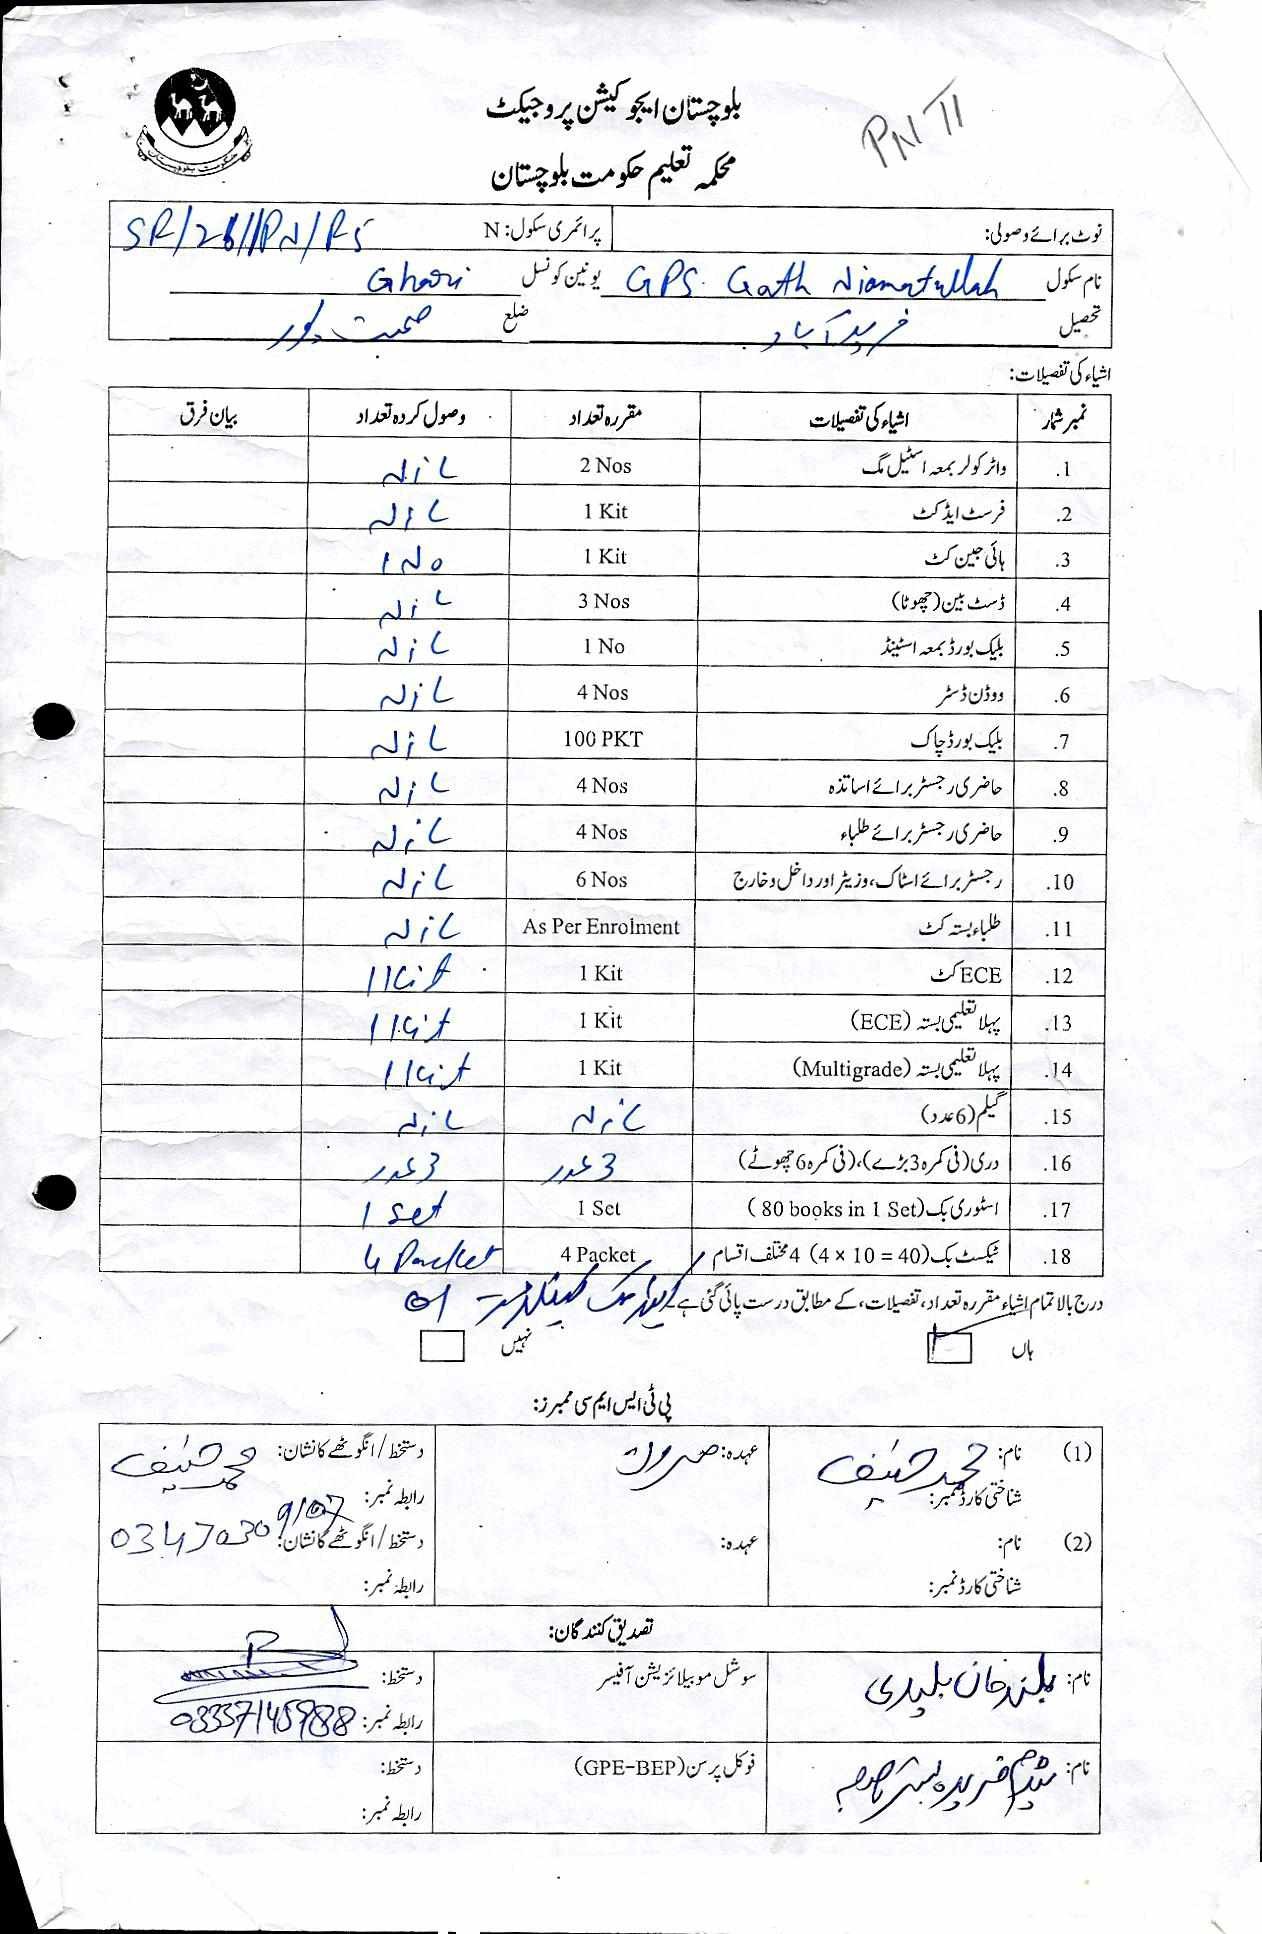 بلوچستان ایجوکیشن پروجیکٹ
PN TI
محکمہ تعلیم حکومت بلوچستان
نوٹ برائے وصولی: پرائمری سکول: N
نام سکول GPS. Goth Niamatullah یونین کونسل Ghari
تحصیل فرید آباد ضلع صحبت پور
اشیاء کی تفصیلات:
نمبر شمار اشیاء کی تفصیلات مقررہ تعداد وصول کردہ تعداد بیان فرق
1. واٹر کولر بمعہ اسٹیل مگ 2 Nos Nil
2. فرسٹ ایڈ کٹ 1 Kit Nil
3. ہائی جین کٹ 1 Kit 1 No
4. ڈسٹ بین (چھوٹا) 3 Nos Nil
5. بلیک بورڈ بمعہ اسٹینڈ 1 No Nil
6. ووڈن ڈسٹر 4 Nos Nil
7. بلیک بورڈ چاک 100 PKT Nil
8. حاضری رجسٹر برائے اساتذہ 4 Nos Nil
9. حاضری رجسٹر برائے طلباء 4 Nos Nil
10. رجسٹر برائے اسٹاک، وزیٹر اور داخل و خارج 6 Nos Nil
11. طلباء بستہ کٹ As Per Enrolment Nil
12. ECE کٹ 1 Kit 1 Kit
13. پہلا تعلیمی بستہ (ECE) 1 Kit 1 Kit
14. پہلا تعلیمی بستہ (Multigrade) 1 Kit 1 Kit
15. گیلم (6 عدد) Nil Nil
16. دری (فی کمرہ 3 بڑے)، (فی کمرہ 6 چھوٹے) 3 عدد 3 عدد
17. اسٹوری بک (80 books in 1 Set) 1 Set 1 Set
18. ٹیکسٹ بک (4 × 10 = 40) 4 مختلف اقسام 4 Packet 4 Packet
درج بالا تمام اشیاء مقررہ تعداد، تفصیلات، کے مطابق درست پائی گئی ہے۔ 01
ہاں نہیں
پی ٹی ایس ایم سی ممبرز:
(1) نام: محمد حنیف عہدہ: دستخط/انگوٹھے کا نشان: محمد حنیف
شناختی کارڈ نمبر: رابطہ نمبر:
(2) نام: عہدہ: دستخط/انگوٹھے کا نشان:
شناختی کارڈ نمبر: رابطہ نمبر:
تصدیق کنندگان:
نام: بلند خان بلیدی سوشل موبیلائزیشن آفیسر دستخط:
رابطہ نمبر:
نام: میڈم فریدہ فوکل پرسن (GPE-BEP) دستخط:
رابطہ نمبر: